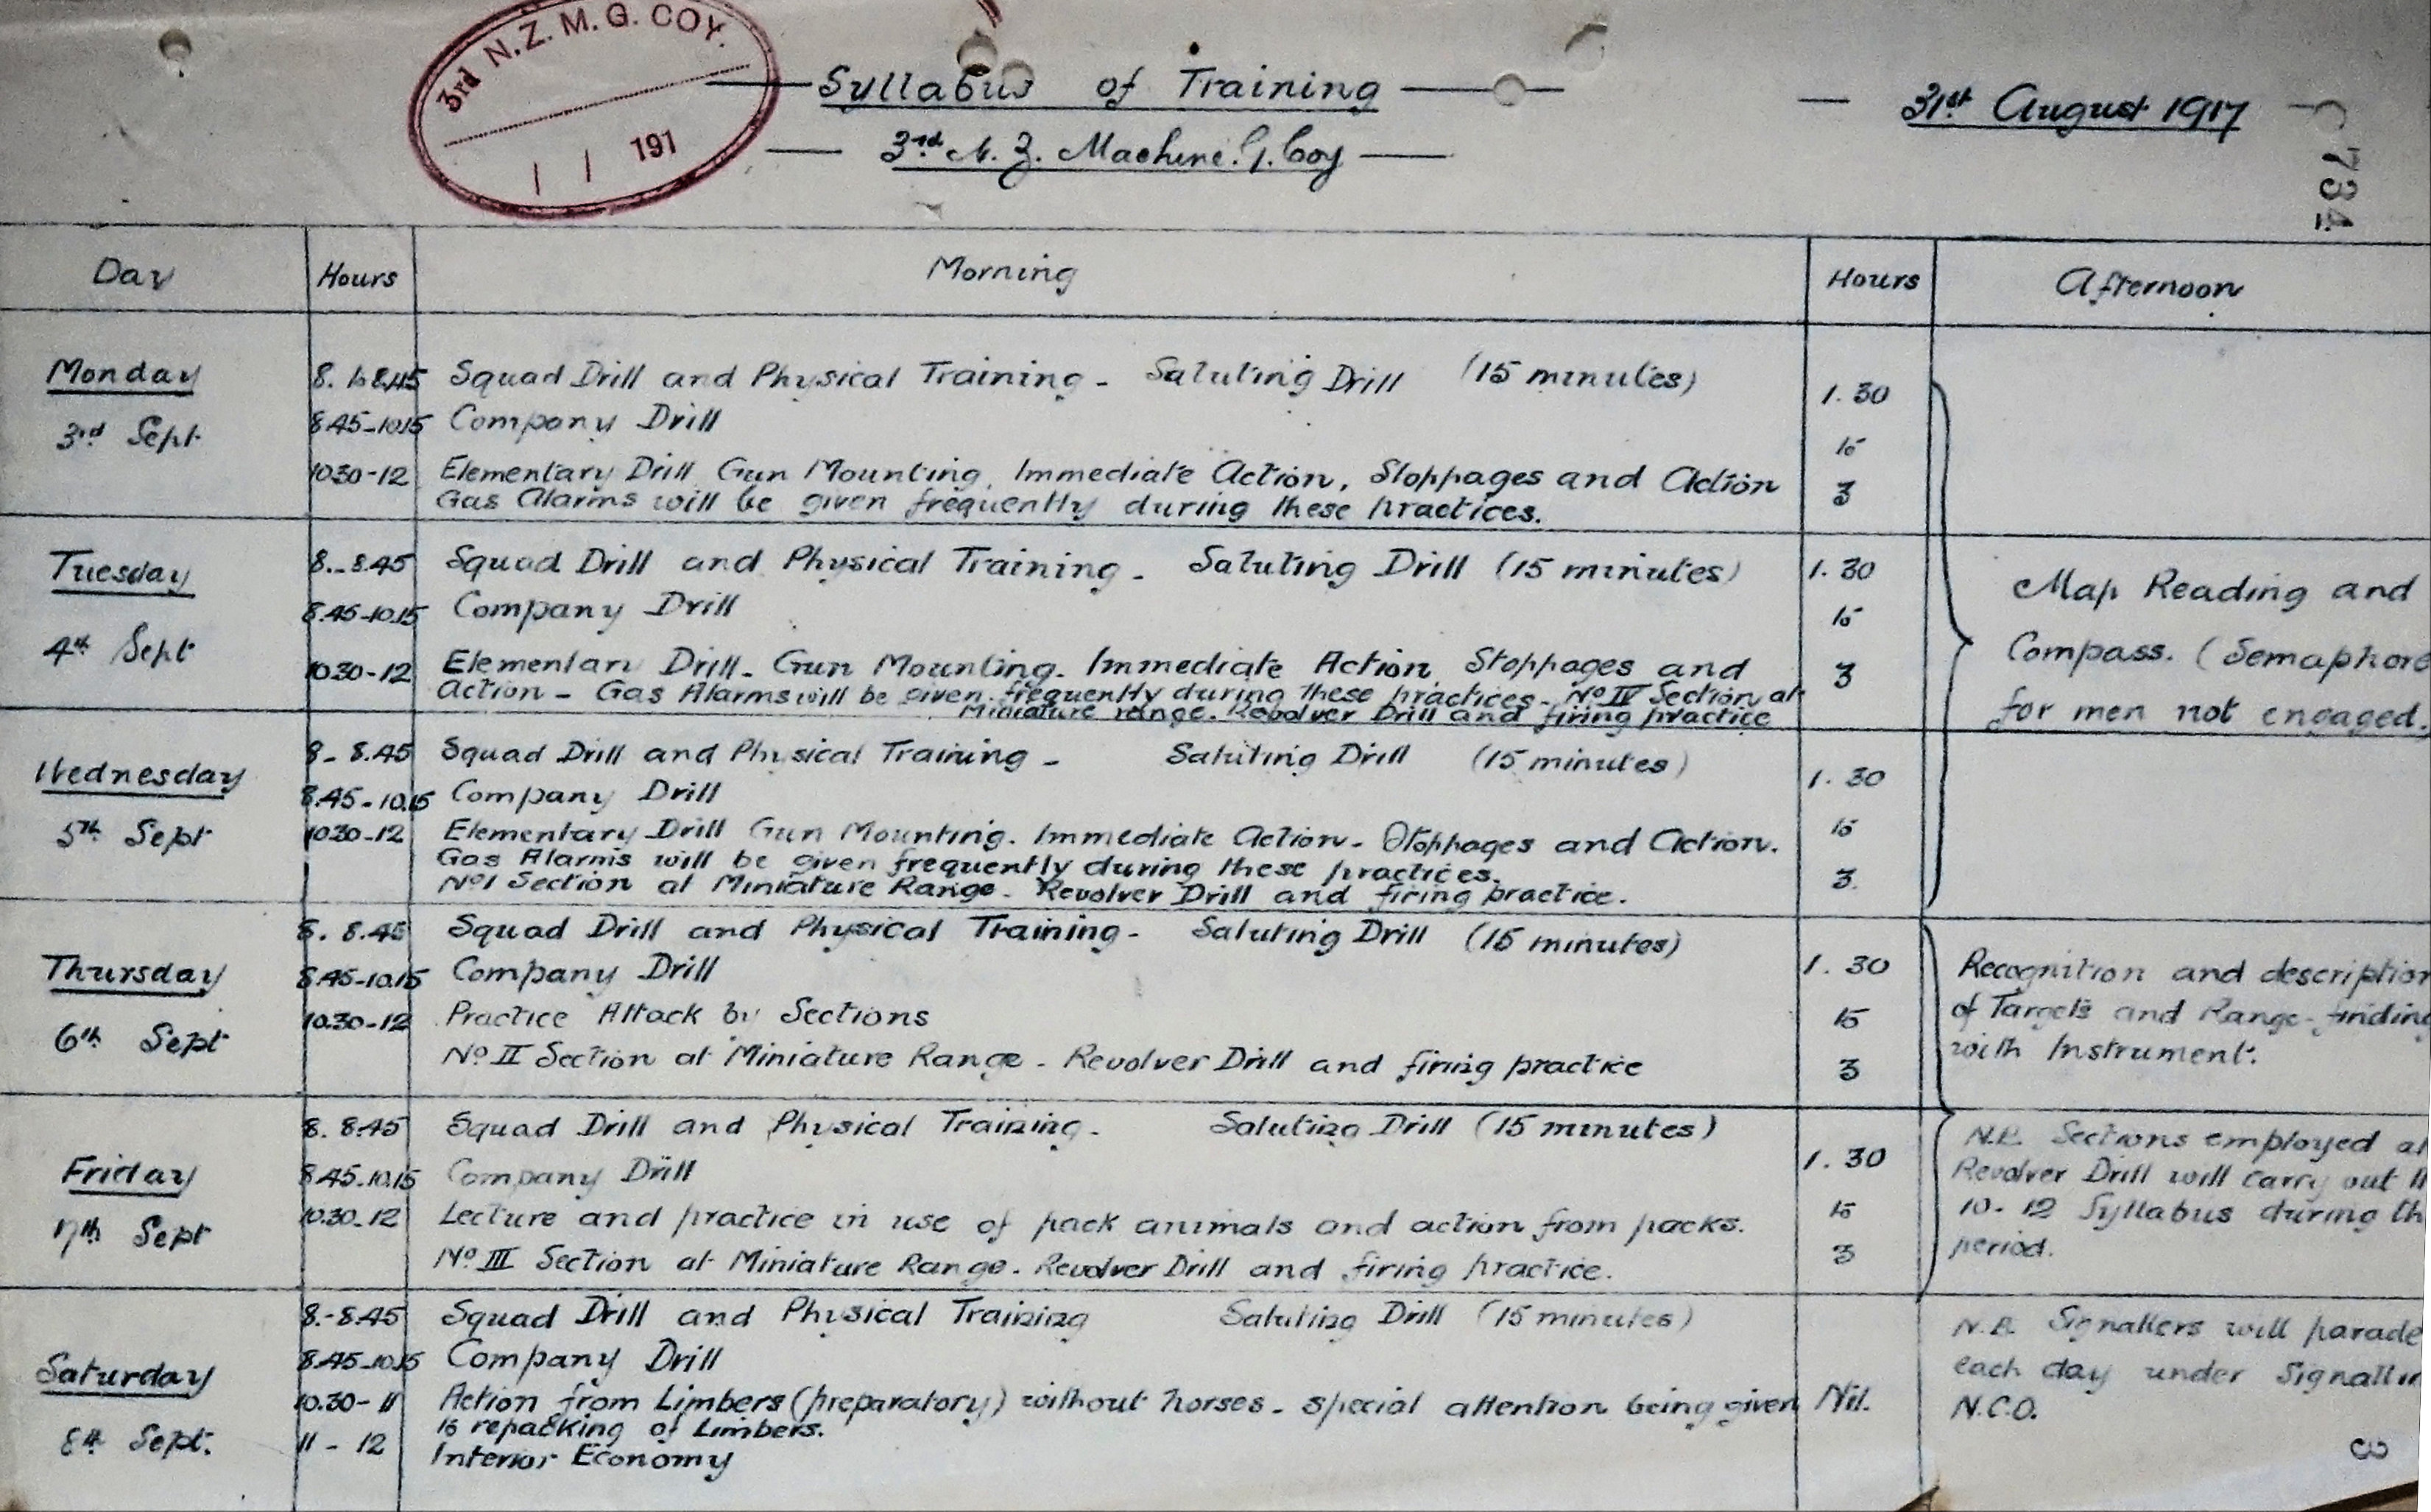 3rd N.Z. M. G. COY.
/ / 191
Syllabus of Training
3rd N. Z. Machine. G. Coy
31st August 1917
C 734
Day Hours Morning Hours Afternoon
Monday
3rd Sept
8. to 8.45 Squad Drill and Physical Training - Saluting Drill (15 minutes)
8.45-10.15 Company Drill
10.30-12 Elementary Drill Gun Mounting. Immediate Action, Stoppages and Action
Gas Alarms will be given frequently during these practices.
1. 30
to
3
Tuesday
4th Sept
8.-8.45 Squad Drill and Physical Training - Saluting Drill (15 minutes)
8.45-10.15 Company Drill
10.30-12 Elementary Drill - Gun Mounting. Immediate Action Stoppages and
Action - Gas Alarms will be given frequently during these practices - No IV Section at
Miniature range. Revolver Drill and firing practice
1. 30
to
3
Map Reading and
Compass. (Semaphore
for men not engaged.
Wednesday
5th Sept
8- 8.45 Squad Drill and Physical Training - Saluting Drill (15 minutes)
8.45-10.15 Company Drill
10.30-12 Elementary Drill Gun Mounting. Immediate Action - Stoppages and Action.
Gas Alarms will be given frequently during these practices.
No I Section at Miniature Range - Revolver Drill and firing practice.
1. 30
to
3.
Thursday
6th Sept
8. 8.45 Squad Drill and Physical Training - Saluting Drill (15 minutes)
8.45-10.15 Company Drill
10.30-12 Practice Attack by Sections
No II Section at Miniature Range - Revolver Drill and firing practice
1. 30
to
3
Recognition and description
of Targets and Range-finding
with Instrument.
Friday
7th Sept
8. 8.45 Squad Drill and Physical Training - Saluting Drill (15 minutes)
8.45-10.15 Company Drill
10.30-12 Lecture and practice in use of pack animals and action from packs.
No III Section at Miniature Range - Revolver Drill and firing practice.
1. 30
to
3
N.B. Sections employed at
Revolver Drill will carry out
10-12 Syllabus during
period.
Saturday
8th Sept.
8.-8.45 Squad Drill and Physical Training Saluting Drill (15 minutes)
8.45-10.15 Company Drill
10.30-11 Action from Limbers (preparatory) without horses - special attention being given
to repacking of Limbers.
11-12 Interior Economy
Nil.
N.B. Signallers will parade
each day under
N.C.O.
3